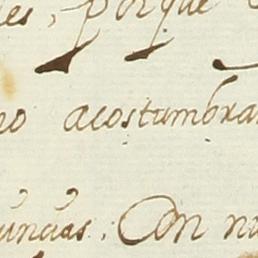 es, porque
no acostumbra
uncias. Con n